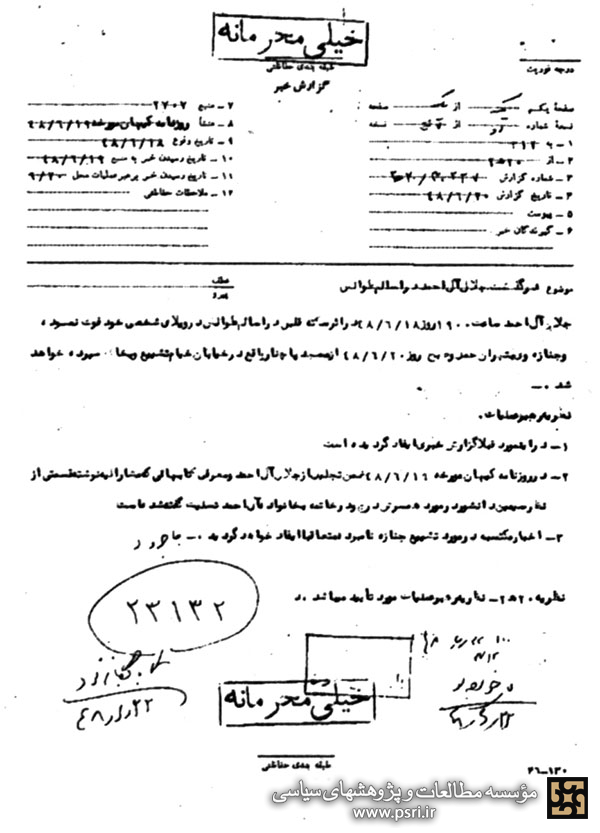 خیلی محرمانه
طبقه بندی حفاظتی
درجه فوریت
گزارش خبر
صفحه یکم از یک صفحه
نسخه شماره از نسخه
۱ـ به ۳۱۲
۲ـ از ۲۰ه۲
۳ـ شماره گزارش
۴ـ تاریخ گزارش ۴۸/۶/۲۰
۵ـ پیوست
۶ـ گیرندگان خبر
۷ـ منبع ۲۷۰۷
۸ـ منشأ روزنامه کیهان مورخه ۴۸/۶/۱۹
۹ـ تاریخ وقوع ۴۸/۶/۱۸
۱۰ـ تاریخ رسیدن خبر به منبع ۴۸/۶/۱۹
۱۱ـ تاریخ رسیدن خبر برهبر عملیات محل
۱۲ـ ملاحظات حفاظتی
موضوع درگذشت جلال آل احمد در اسالم طوالش
عطف
پیرو
جلال آل احمد ساعت ۱۹۰۰ روز ۴۸/۶/۱۸ در اثر سکته قلبی در اسالم طوالش در ویلای شخصی خود فوت نموده
وجنازه وی بتهران حمل و صبح روز ۴۸/۶/۲۰ از مسجد واقع در خیابان خیام تشییع و بخاک سپرده خواهد
شد ۰ـ
نظریه رهبر عملیات.
۱ـ در اینمورد قبلا گزارش خبری ایفاد گردیده است
۲ـ در روزنامه کیهان مورخه ۴۸/۶/۱۹ ضمن تجلیل از جلال آل احمد ومعرفی کتابهائی که مشارالیه نوشته قسمتی از
نظر سیمین دانشور در مورد همسرش درج ودر خاتمه بخانواده آل احمد تسلیت گفته شده است
۳ـ اخبار مکتسبه در مورد تشییع جنازه نامبرده متعاقبا ایفاد خواهد گردید ۰ـ
نظریه ۲۰ه۲ـ نظریه رهبر عملیات مورد تأیید میباشد .
۲۳۱۳۲
خیلی محرمانه
طبقه بندی حفاظتی
۲۶ـ۱۳۰
مؤسسه مطالعات و پژوهشهای سیاسی
www.psri.ir